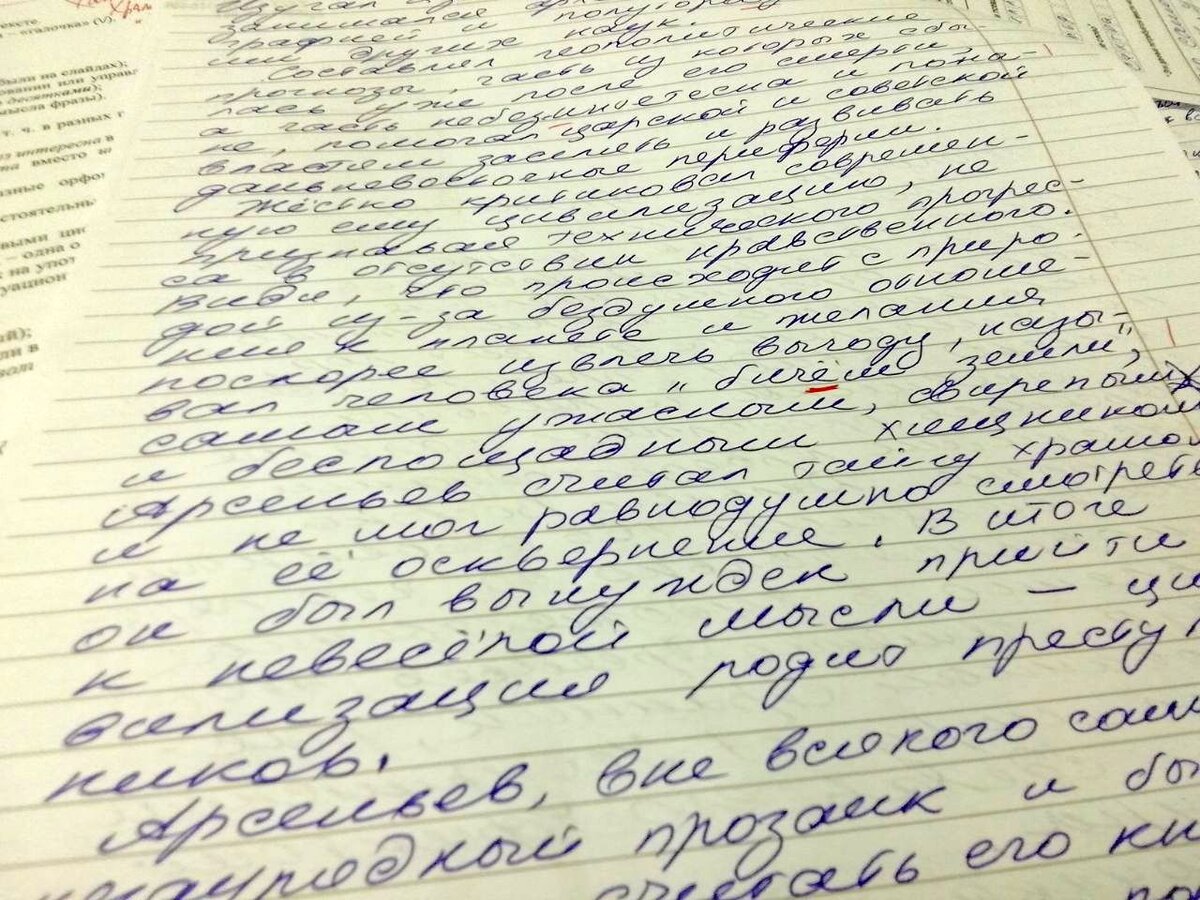 ксте
"галочка" (V).
были на слайдах);
десятками);
мысла фразы).
т. ч. в разных г
из интересна в
на вместо
стоятельн
одна о
на упот
Храм
Изучал
занимался
графией и
ми других наук.
Составлял геополитические
прогнозы, часть из которых сбы
лась уже после его смерти,
а часть небезинтестна и поны-
не, помогал царской и советской
властям заселять и развивать
дальневосточные периферии.
Жёстко критиковал современ-
ную ему цивилизацию, не
признавая технического прогрес-
са в отсутствии нравственного.
Видя, что происходит с приро-
дой из-за бездумного отноше-
ния к планете и желания
поскорее извлечь выгоду, назы-
вал человека "бичём земли",
самым ужасным, свирепым
и беспощадным хищником
Арсеньев считал тайгу храмом
и не мог равнодушно смотреть
на её осквернение. В итоге
он был вынужден прийти
к невесёлой мысли – ци
вилизация родит преступ
ников.
Арсеньев, вне всякого сом
прозаик и бы
считать его кн